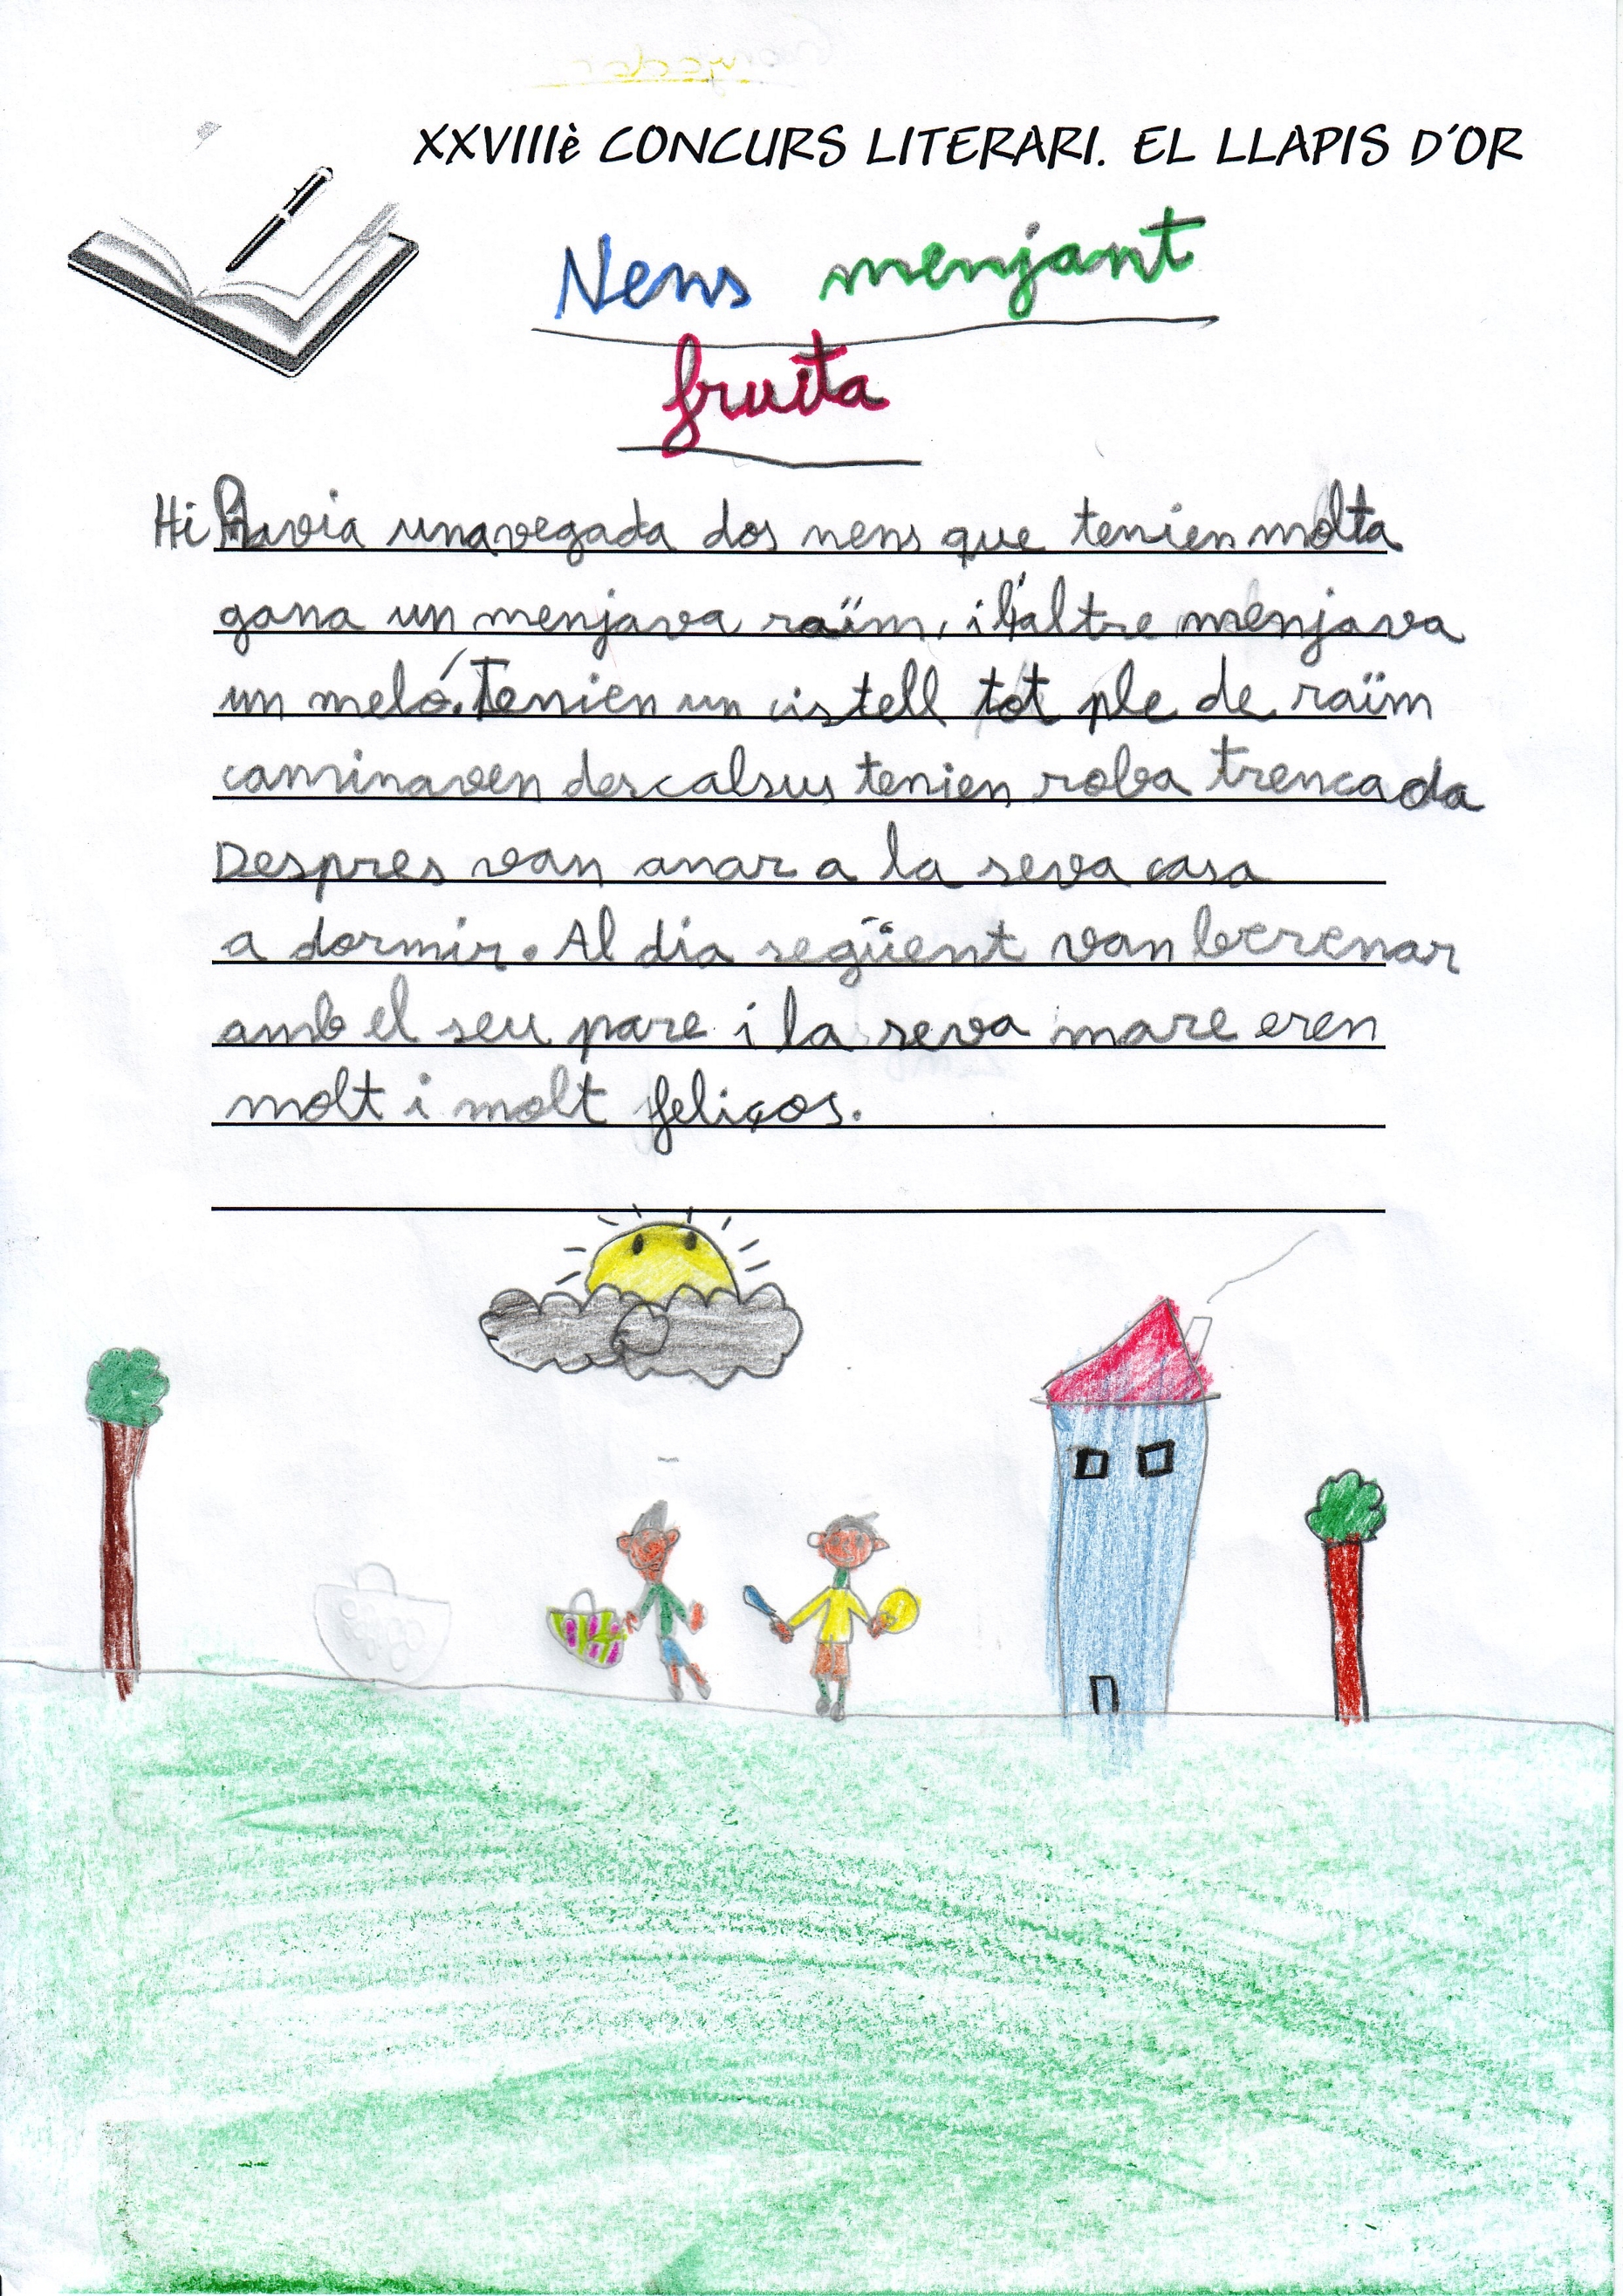 XXVIIIè CONCURS LITERARI. EL LLAPIS D'OR
Nens menjant
fruita
Hi havia unavegada dos nens que tenien molta
gana un menjava raïm, i l'altre menjava
un meló. Tenien un cistell tot ple de raïm
caminaven descalsus tenien roba trencada
Despres van anar a la seva casa
a dormir. Al dia següent van berenar
amb el seu pare i la seva mare eren
molt i molt feliços.